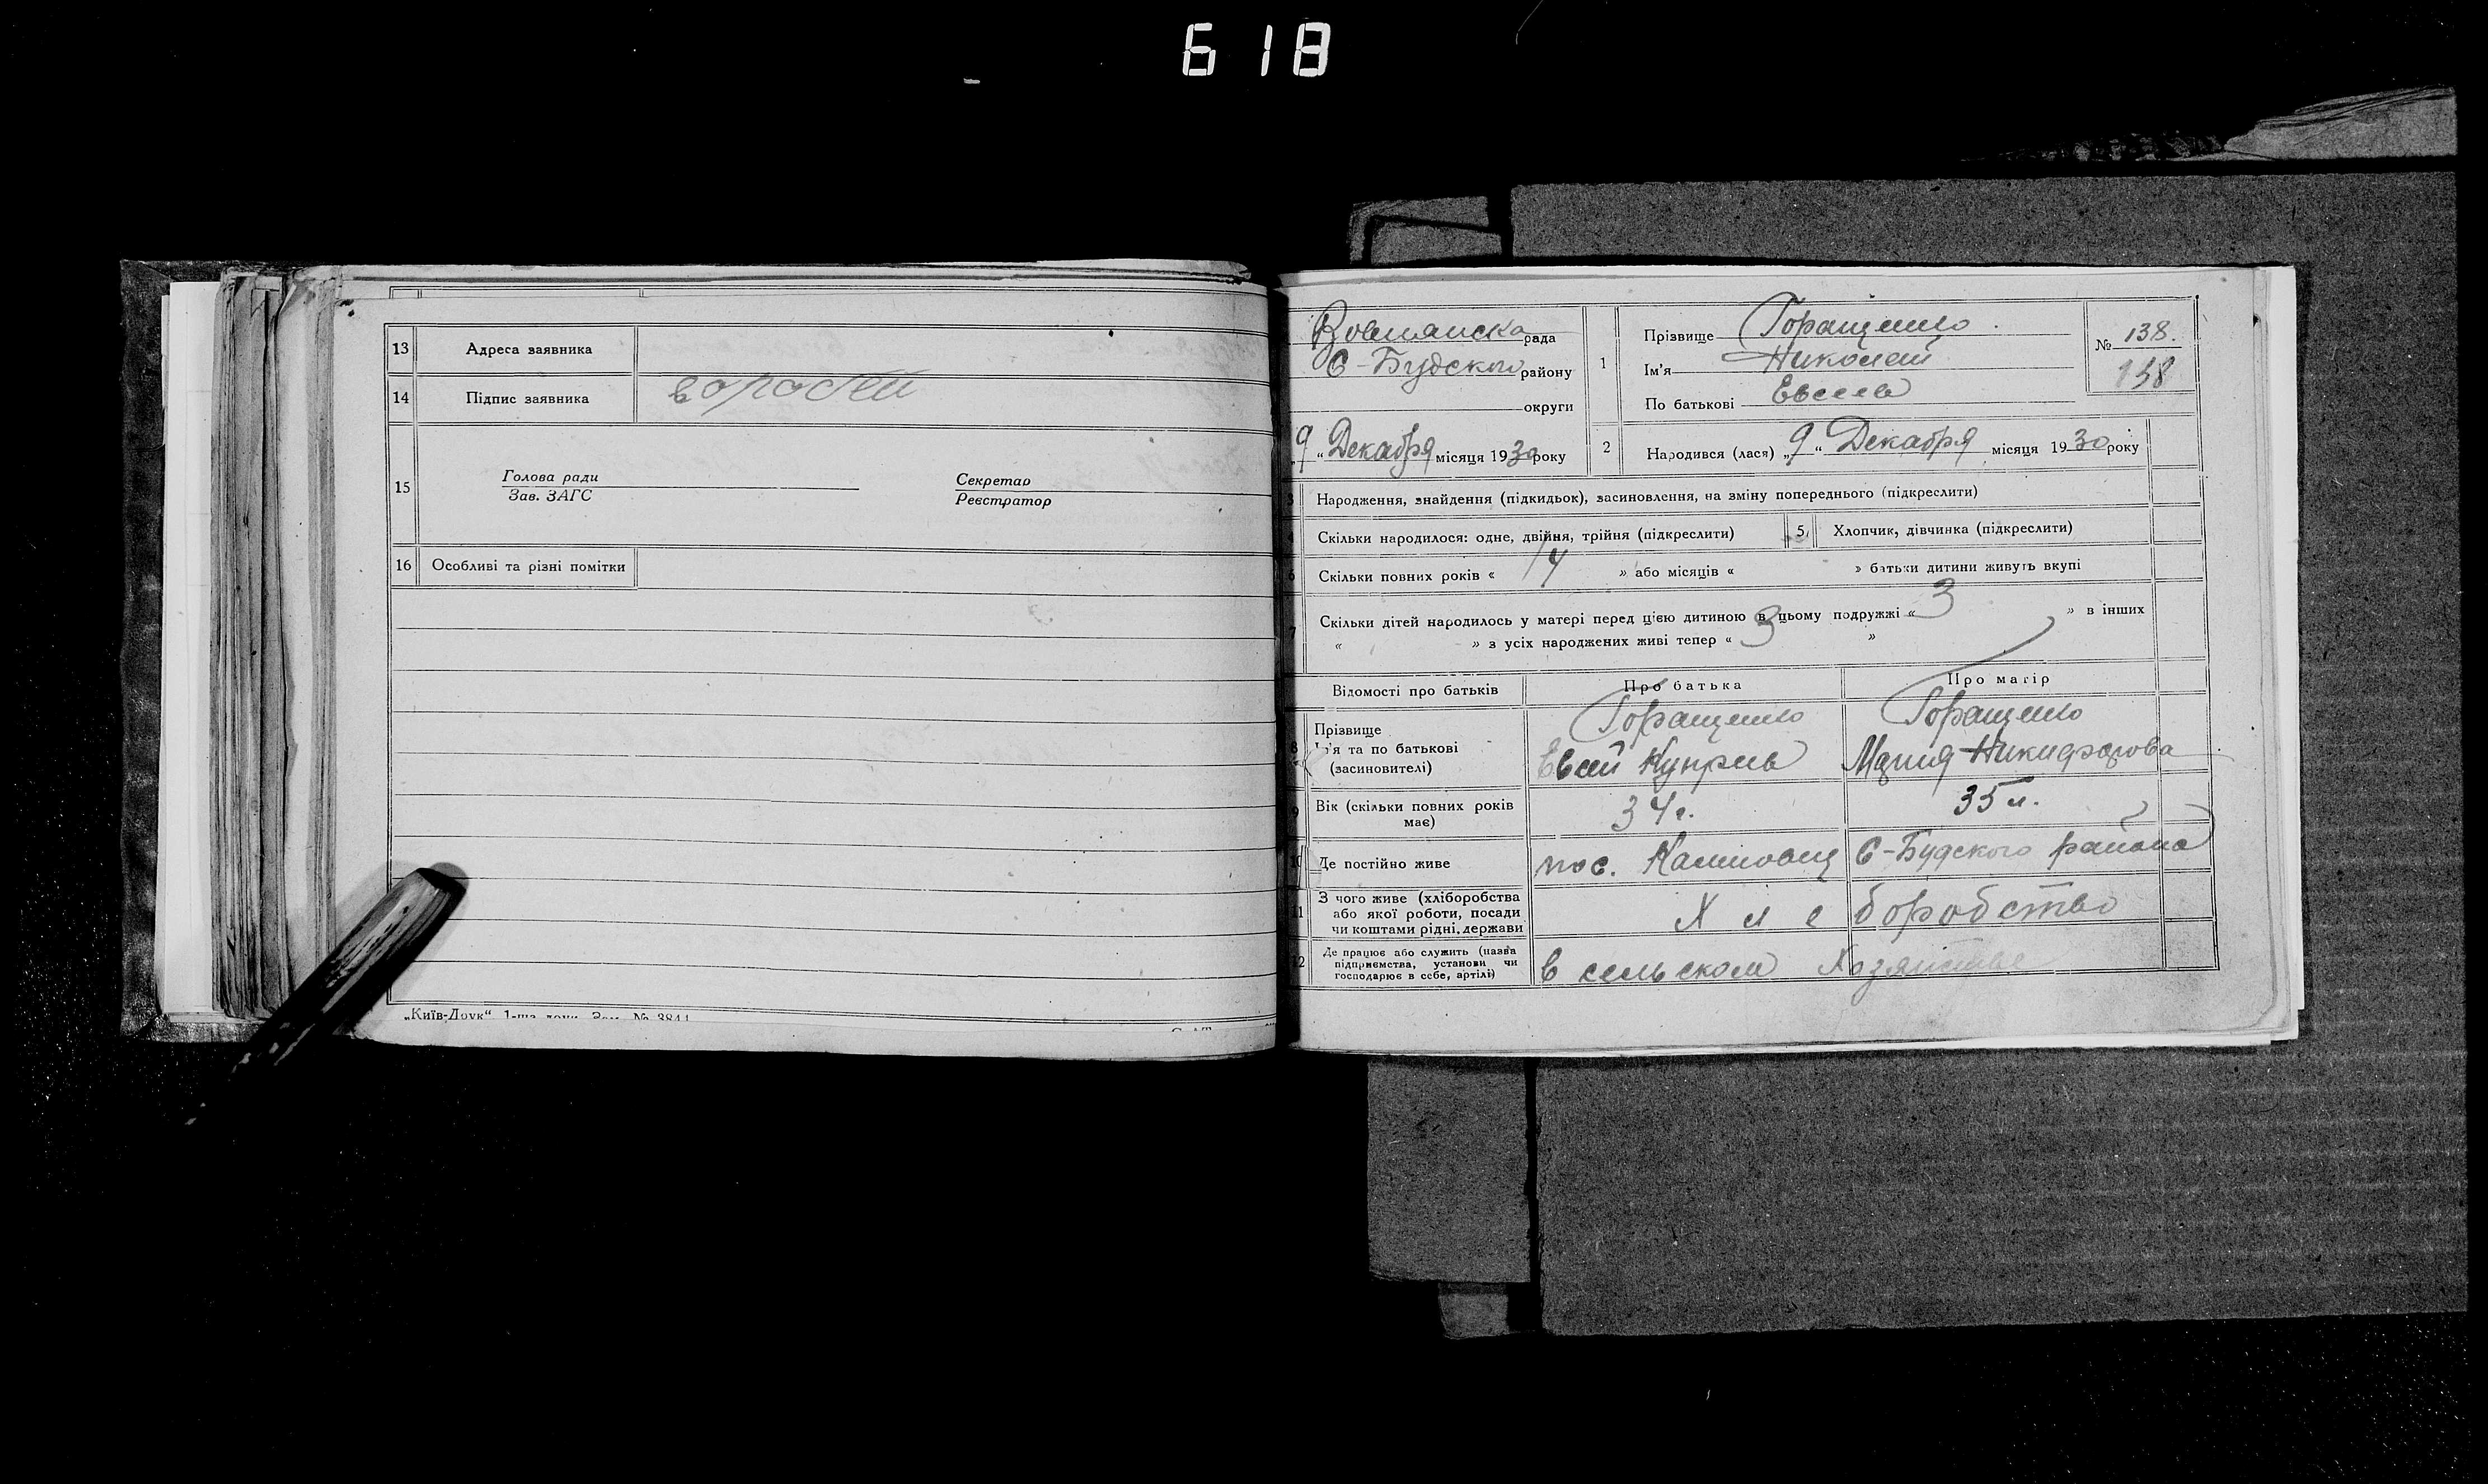 618
13 Адреса заявника
14 Підпис заявника воробей
15 Голова ради Секретар
Зав. ЗАГС Реєстратор
16 Особливі та різні помітки
„Київ-Друк“ 1-ша друк. Зам. № 3844
рада
С-Будского району
округи
„9“ Декабря місяця 1930 року
1 Прізвище Горащенко
Ім'я Николай
По батькові Евсеев
№ 138.
138
2 Народився (лася) „9“ Декабря місяця 1930 року
3 Народження, знайдення (підкидьок), засиновлення, на зміну попереднього (підкреслити)
4 Скільки народилося: одне, двійня, трійня (підкреслити) 5 Хлопчик, дівчинка (підкреслити)
6 Скільки повних років « 14 » або місяців « » батьки дитини живуть вкупі
7 Скільки дітей народилось у матері перед цією дитиною в цьому подружжі « 3 » в інших
« » з усіх народжених живі тепер « 3 »
Відомості про батьків Про батька Про матір
8 Прізвище Горащенко Горащенко
Ім'я та по батькові Евсей Куприев Мария Никифорова
(засиновителі)
9 Вік (скільки повних років має) 34 г. 35 л.
10 Де постійно живе пос. С-Будского района
11 З чого живе (хліборобства
або якої роботи, посади
чи коштами рідні, держави
Хлеборобство
12 Де працює або служить (назва
підприємства, установи чи
господарює в себе, артілі)
в сельском хозяйстве